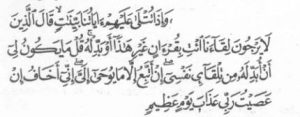 وَإِذَا تُتْلَىٰ عَلَيْهِمْ ءَايَاتُنَا بَيِّنَٰتٍ قَالَ الَّذِينَ
لَا يَرْجُونَ لِقَاءَنَا ائْتِ بِقُرْءَانٍ غَيْرِ هَٰذَا أَوْ بَدِّلْهُ قُلْ مَا يَكُونُ لِي
أَنْ أُبَدِّلَهُ مِنْ تِلْقَائِ نَفْسِي إِنْ أَتَّبِعُ إِلَّا مَا يُوحَىٰ إِلَيَّ إِنِّي أَخَافُ إِنْ
عَصَيْتُ رَبِّي عَذَابَ يَوْمٍ عَظِيمٍ